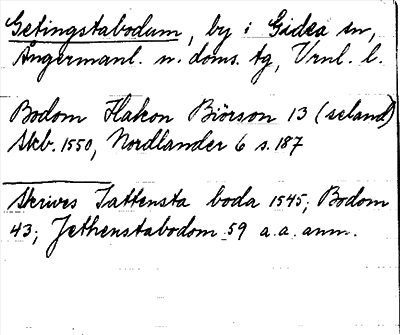 Getingstabodum, by i Gideå sn,
Ångermanl. n. doms. tg, Vrnl. l.
Bodom Hakon Biörson 13 (seland)
Skb. 1550, Nordlander 6 s. 187
Skrives Jattensta boda 1545; Bodom
43; Jethenstabodom 59 a.a. anm.